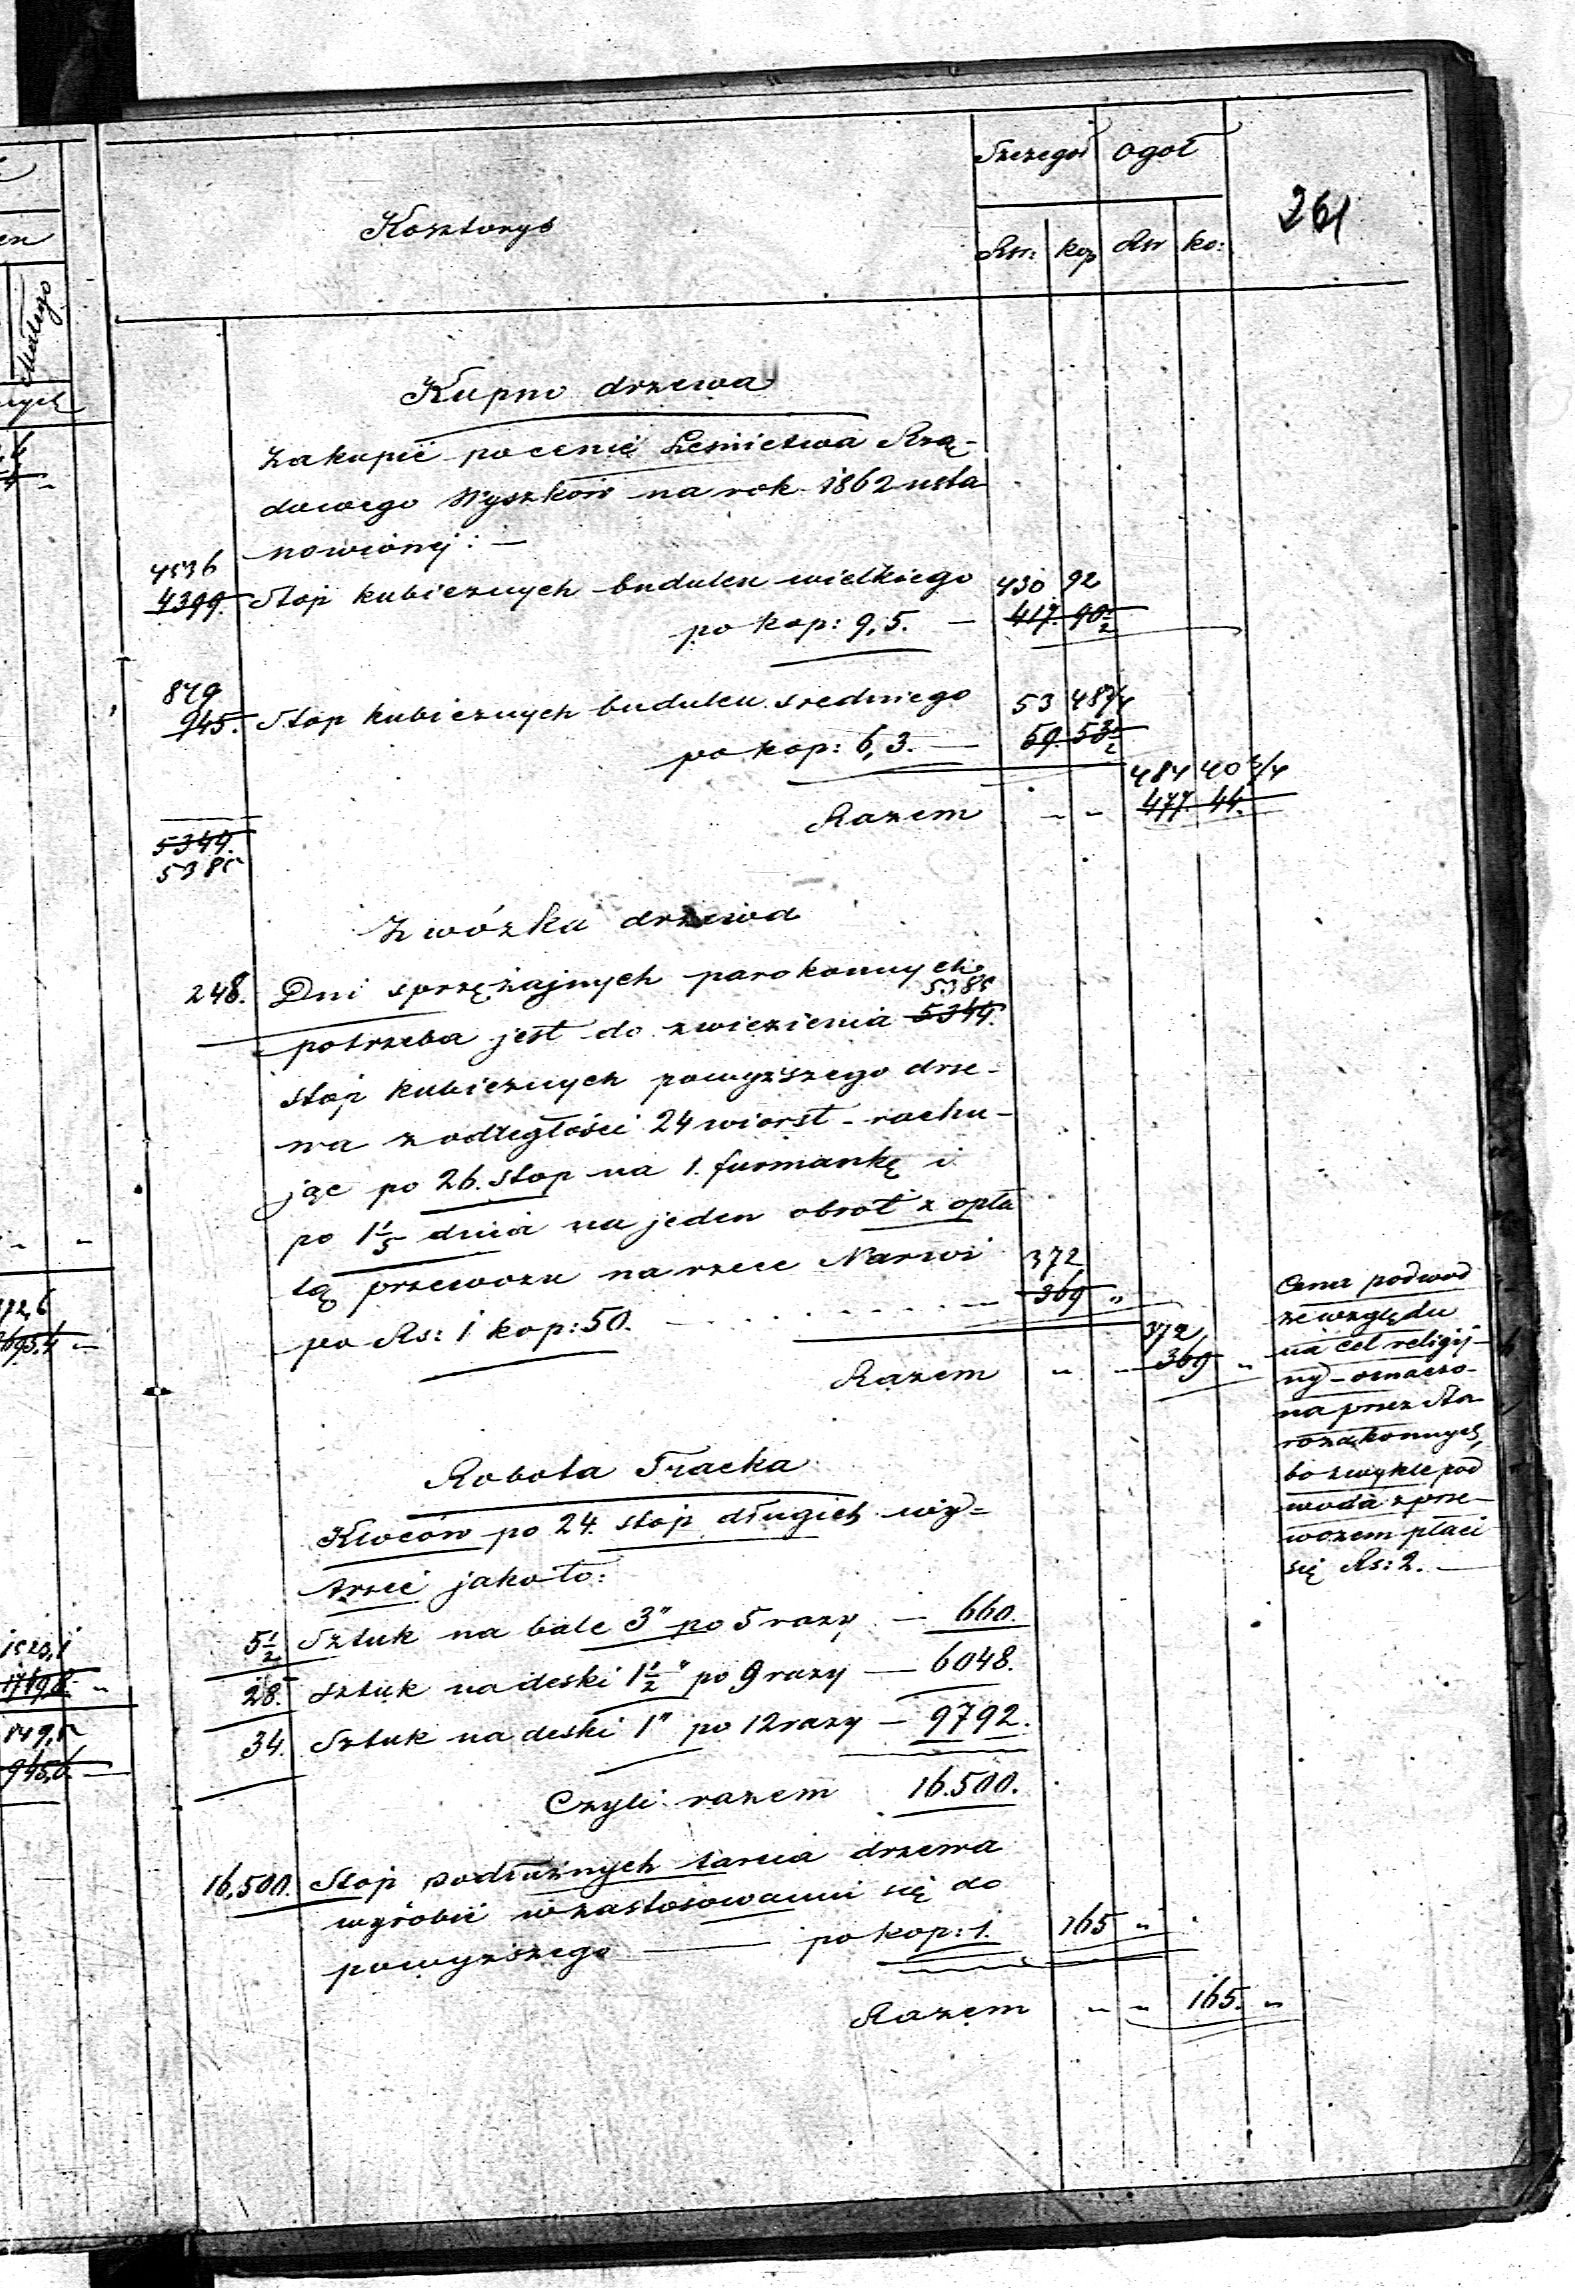 Szczegół ogół
261
Kosztorys
Rsr: kop Rsr ko:
Małego
Kupno drzewa
zakupić po cenie Leśnictwa Rzą-
dowego Wyszków na rok 1862 usta
nowionej: —
4536
4399. Stóp kubicznych budulcu wielkiego 430 92
po kop: 9,5. — 417. 90½
849
945. Stóp kubicznych budulcu średniego 53 48¾
po kop: 6,3. — 59. 53½
484 40¾
Razem „ „ 477. 44.
5344.
5385
Zwózka drzewa
248. Dni sprzężajnych parokonnych
5385
potrzeba jest do zwiezienia 5344.
stóp kubicznych powyższego drze-
wa z odległości 24 wiorst - rachu-
jąc po 26. stóp na 1. furmankę i
po 1⅕ dnia na jeden obrót z opła
tą przewozu na rzece Narwi 372
po Rs: 1 kop: 50. — 369 „
372
Razem „ — 369 „
Cena podwod
ze względu
na cel religij-
ny - oznaczo-
na przez Sta-
rozakonnych,
bo zwykle pod
woda z prze-
wozem płaci
się Rs: 2. —
Robota Tracka
Kloców po 24. stóp długich wy-
trzeć jako to:
5½ Sztuk na bale 3" po 5 razy — 660.
28. Sztuk na deski 1½" po 9 razy — 6048.
34. Sztuk na deski 1" po 12 razy — 9792.
Czyli razem 16.500.
16,500. Stóp podłużnych tarcia drzewa
wyrobić w zastosowaniu się do
powyższego — po kop: 1. 165 „
Razem „ „ 165. „